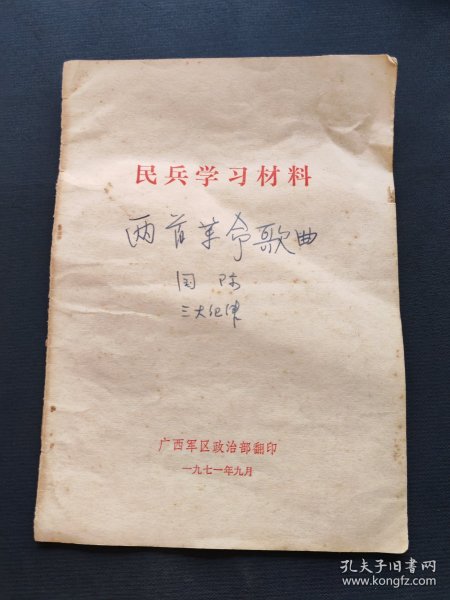 民兵学习材料
两首革命歌曲
国际
三大纪律
广西军区政治部翻印
一九七一年九月
孔夫子旧书网
www.kongfz.com